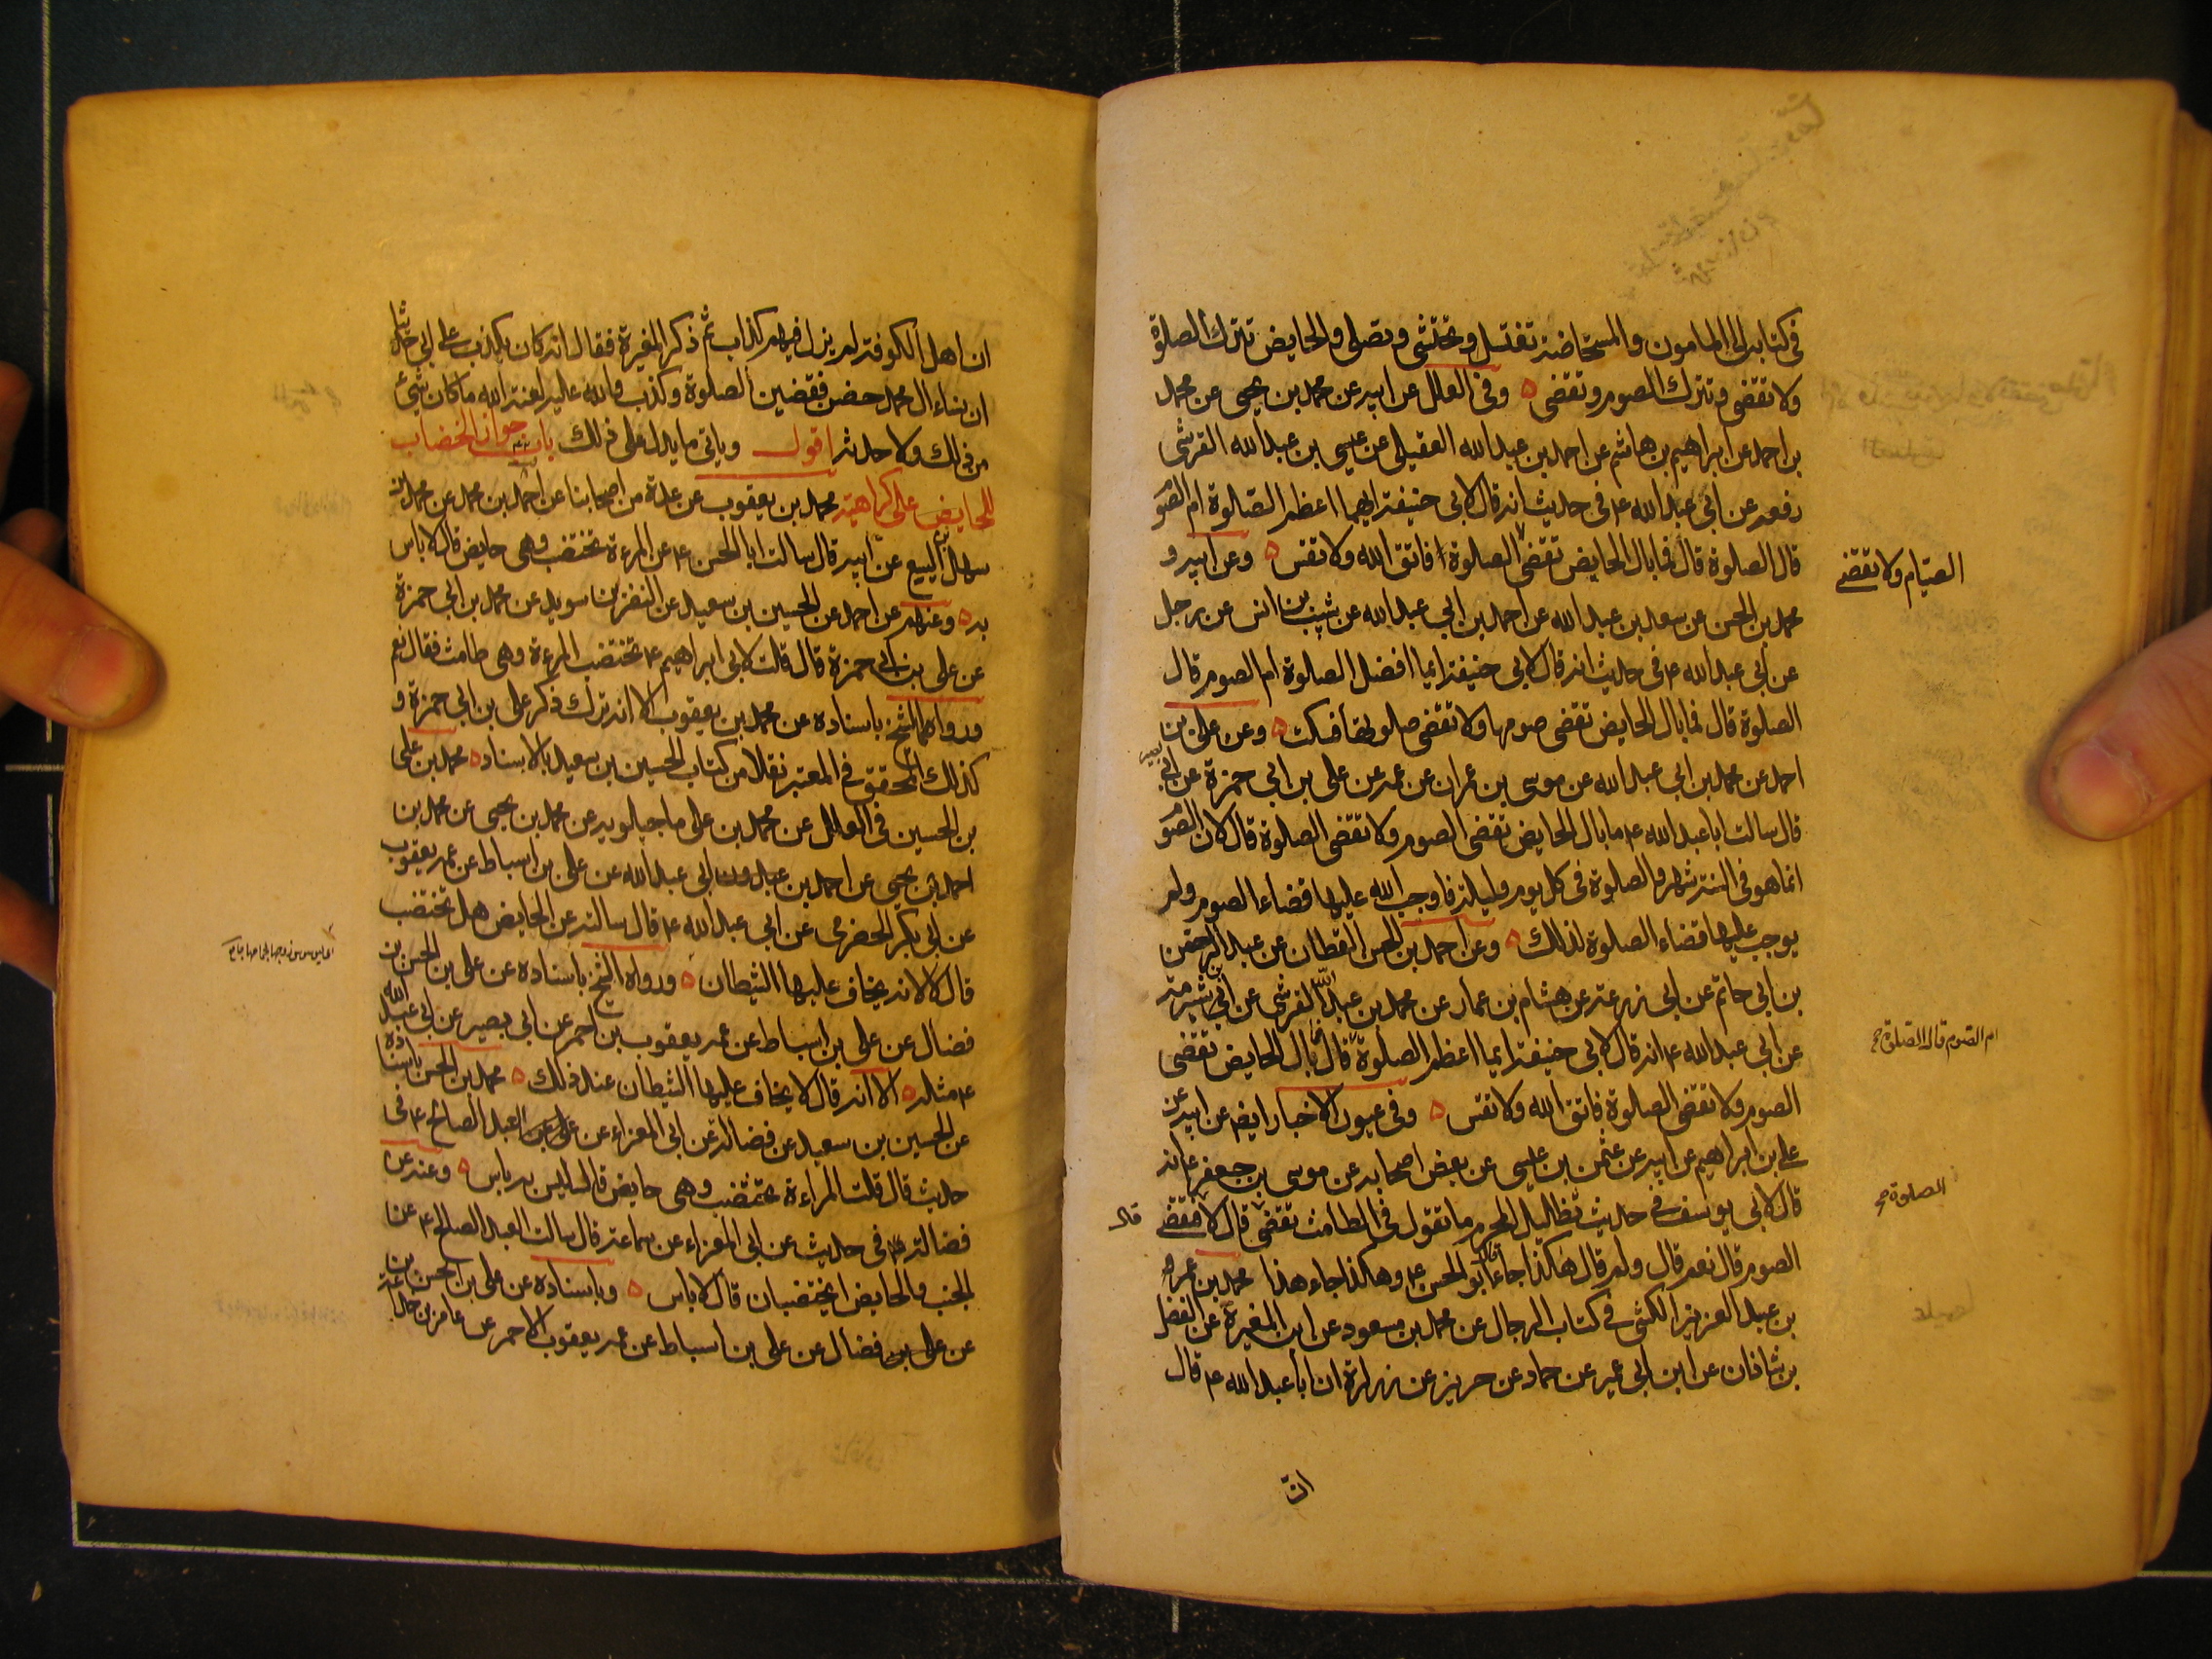 فى كتابه الى المامون والمستحاضة تغتسل وتحتشى وتصلى والحايض تترك الصلوة
ولا تقضى وتترك الصوم وتقضى ه وفى العلل عن ابيه عن محمد بن يحيى عن محمد
بن احمد عن ابراهيم بن هاشم عن احمد بن عبد الله العقيلى عن عيسى بن عبد الله القرشى
رفعه عن ابى عبد الله ع فى حديث انه قال لابى حنيفة ايهما اعظم الصلوة ام الصو
قال الصلوة قال فما بال الحايض تقضى الصلوة فاتق الله ولا تقس ه وعن ابيه و
الصيام ولا تقضى
محمد بن الحسن عن سعد بن عبد الله عن احمد بن ابى عبد الله عن شبيب بن انس عن رجل
عن ابى عبد الله ع فى حديث انه قال لابى حنيفة ايما افضل الصلوة ام الصوم قال
الصلوة قال فما بال الحايض تقضى صومها ولا تقضى صلوتها فسكت ه وعن على بن
احمد عن محمد بن ابى عبد الله عن موسى بن عمران عن عمه عن على بن ابى حمزة عن ابى بصير
قال سالت ابا عبد الله ع ما بال الحايض تقضى الصوم ولا تقضى الصلوة قال لان الصو
انما هو فى السنة شهر والصلوة فى كل يوم وليلة فاوجب الله عليها قضاء الصوم ولم
يوجب عليها قضاء الصلوة لذلك ه وعن احمد بن الحسن القطان عن عبد الرحمن
بن ابى حاتم عن ابى زرعة عن هشام بن عمار عن محمد بن عبد الله القرشى عن ابن شبرمة
عن ابى عبد الله ع انه قال لابى حنيفة ايما اعظم الصلوة قال فما بال الحايض تقضى
ام الصوم قال الصلوة صح
الصوم ولا تقضى الصلوة فاتق الله ولا تقس ه وفى عيون الاخبار ايضا عن ابيه عن
على بن ابراهيم عن ابيه عن عثمن بن عيسى عن بعض اصحابه عن موسى بن جعفر ع انه
قال لابى يوسف فى حديث تظليل المحرم ما تقول فى الطامث تقضى قال لا قال فتقضى
الصلوة صح
الصوم قال نعم قال ولم قال هكذا جاء قال ابو الحسن ع وهكذا جاء هذا محمد بن عمر
بن عبد العزيز الكشى فى كتاب الرجال عن محمد بن مسعود عن ابن المغيرة عن الفضل
بن شاذان عن ابن ابى عمير عن حماد عن حريز عن زرارة ان ابا عبد الله ع قال
ان
ان اهل الكوفة لم يزل فيهم كذاب ثم ذكر المغيرة فقال انه كان يكذب على ابى حدثنا
ان نساء ال محمد حضن فقضين الصلوة وكذب والله عليه لعنة الله ما كان شئ
من ذلك ولا حدثه اقول وياتى ما يدل على ذلك باب جواز الخضاب
للحايض على كراهية محمد بن يعقوب عن عدة من اصحابنا عن احمد بن محمد عن محمد بن
سهل بن اليسع عن ابيه قال سالت ابا الحسن ع عن المرءة تختضب وهى حايض قال لا باس
به ه وعنهم عن احمد عن الحسين بن سعيد عن النضر بن سويد عن محمد بن ابى حمزة
عن على بن ابى حمزة قال قلت لابى ابراهيم ع تختضب المرءة وهى طامث فقال نعم
ورواهما الشيخ باسناده عن محمد بن يعقوب الا انه ترك ذكر على بن ابى حمزة و
كذلك المحقق فى المعتبر نقلا من كتاب الحسين بن سعيد بالاسناد ه محمد بن على
بن الحسين فى العلل عن محمد بن على ماجيلويه عن محمد بن يحيى عن محمد بن
احمد بن يحيى عن احمد بن ابى عبد الله عن على بن اسباط عن عمه يعقوب
عن ابى بكر الحضرمى عن ابى عبد الله ع قال سالته عن الحايض هل تختضب
قال لا لانه يخاف عليها الشيطان ه ورواه الشيخ باسناده عن على بن الحسن بن
فضال عن على بن اسباط عن عمه يعقوب بن احمر عن ابى بصير عن ابى عبد الله
ع مثله ه الا انه قال لا يخاف عليها الشيطان عند ذلك ه محمد بن الحسن باسناده
عن الحسين بن سعيد عن فضالة عن ابى المعزاء عن العبد الصالح ع فى
حديث قال قلت المراءة تختضب وهى حايض قال ليس به باس ه وعنه عن
فضالة فى حديث عن ابى المعزاء عن سماعة قال سالت العبد الصالح ع عن
الجنب والحايض ايختضبان قال لا باس ه وباسناده عن على بن الحسن بن
عن على بن فضال عن على بن اسباط عن عمه يعقوب الاحمر عن عامر بن جذاعة